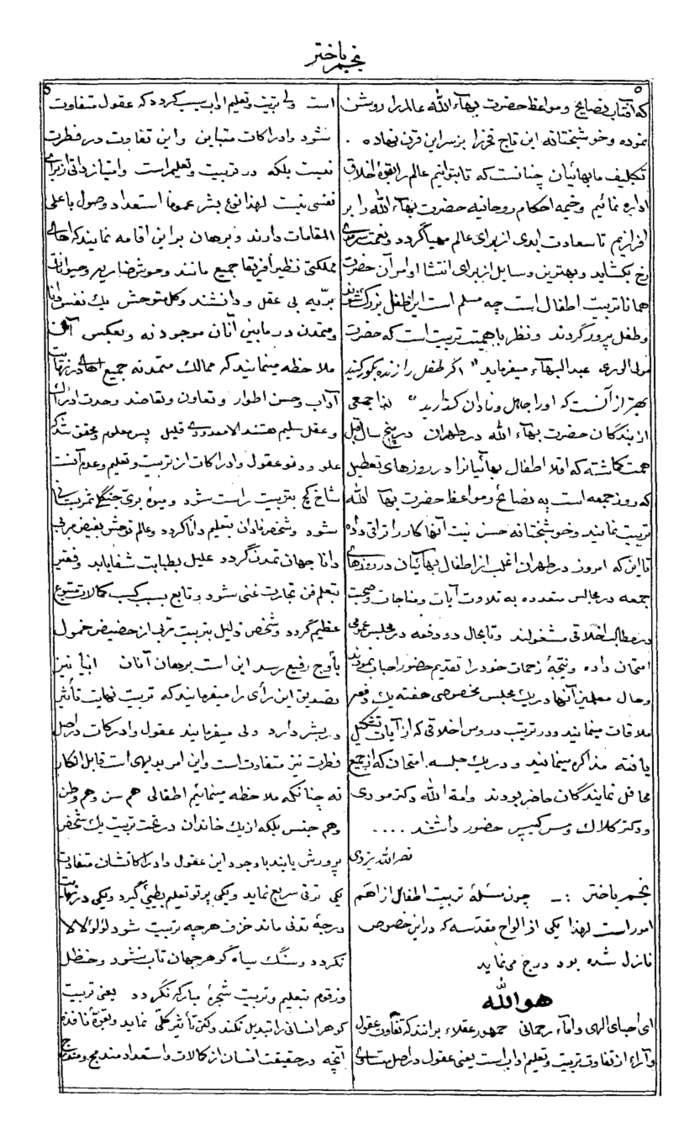 نجم باختر
۵
که آفتاب نصایح و مواعظ حضرت بهآءالله عالم را روشن
نموده و خوشبختانه این تاج فخر را بر سر این قرن نهاده .
تکلیف ما بهائیان چنانست که تا بتوانیم عالم را بقوهٔ اخلاق
اداره نمائیم و خیمه احکام روحانیه حضرت بهآءالله را بر
افرازیم تا سعادت ابدی از برای عالم مهیا گردد و نعمت سرمدی
رخ بگشاید و بهترین وسایل از برای انتشار اوامر آن حضرت
همانا تربیت اطفال است چه مسلم است این طفل بزرگ شود
و طفل پرور گردند و نظر باهمیت تربیت است که حضرت
مولی الوری عبدالبهآء میفرماید " اگر طفل را زنده بگور کنید
بهتر از آنست که او را جاهل و نادان گذارید " لذا جمعی
از بندگان حضرت بهآء الله در طهران در پنج سال قبل
همت گماشته که اقلا اطفال بهائیان را در روزهای تعطیل
که روز جمعه است به نصائح و مواعظ حضرت بهآ الله
تربیت نمایند و خوشبختانه حسن نیت آنها کار را ترقی داده
تا این که امروز در طهران اغلب از اطفال بهائیان در روزهای
جمعه در مجالس متعدده به تلاوت آیات و مناجات و صحبت
در مطالب اخلاقی مشغولند و تا بحال دو دفعه در مجلس عمومی
امتحان داده و نتیجهٔ زحمات خود را تقدیم حضور احباب نمودند
و حال معلمین آنها در یک مجلس مخصوصی هفته یک دفعه
ملاقات مینمایند و در ترتیب دروس اخلاقی که از آیات تشکیل
یافته مذاکره مینمایند و در یک جلسه امتحان که از جمیع
محافل نمایندگان حاضر بودند و امة الله دکتر مودی
و دکتر کلاک و مس کیپس حضور داشتند ....
نصرالله یزدی
نجم باختر :- چون مسئلهٔ تربیت اطفال از اهم
امور است لهذا یکی از الواح مقدسه که در این خصوص
نازل شده بود درج می نماید
هوالله
ای احبای الهی و اماء رحمانی جمهور عقلاء برانند که تفاوت عقول
و آراء از تفاوت تربیت و تعلیم آداب است یعنی عقول در اصل متساوی
است ولی تربیت و تعلیم آداب سبب گردد که عقول متفاوت
شود و ادراکات متباین و این تفاوت در فطرت
نیست بلکه در تربیت و تعلیم است و امتیاز ذاتی از برای
نفسی نیست لهذا نوع بشر عموماً استعداد وصول باعلی
المقامات دارند و برهان بر این اقامه نمایند که اهالی
مملکتی نظیر افریقا جمیع مانند وحوش ضاریه و حیوانات
بریّه بی عقل و دانشند و کل متوحش یک نفس دانا
و متمدن در ما بین آنان موجود نه و بعکس آن
ملاحظه مینمائید که ممالک متمدنه جمیع اهالی در نهایت
آداب و حسن اطوار و تعاون و تعاضد و حدت ادراک
و عقل سلیم هستند الا معدودی قلیل پس معلوم و محقق شد که
علو و دنو عقول و ادراکات از تربیت و تعلیم و عدم آنست
شاخ کج بتربیت راست شود و میوهٔ بری جنگلی ثمر بستانی
شود و شخص نادان بتعلیم دانا گردد و عالم توحش بفیض مربی
دانا جهان تمدن گردد علیل بطبابت شفا یابد و فقیر
بتعلم فن تجارت غنی شود و تابع بسبب کسب کمالات متبوع
عظیم گردد و شخص ذلیل بتربیت مربی از حضیض خمول
بأوج رفیع رسد این است برهان آنان انبیا نیز
تصدیق این رأی را میفرمایند که تربیت نهایت تأثیر
در بشر دارد ولی میفرمایند عقول و ادراکات در اصل
فطرت نیز متفاوت است و این امر بدیهی است قابل انکار
نه چنانکه ملاحظه مینمائیم اطفالی هم سن و هم وطن
و هم جنس بلکه از یک خاندان در تحت تربیت یک شخص
پرورش یابند با وجود این عقول و ادراکاتشان متفاوت
یکی ترقی سریع نماید و یکی پرتو تعلیم بطیئ گیرد و یکی در نهایت
درجهٔ تدنی ماند خزف هر چه تربیت شود لؤلؤ لالا
نگردد و سنگ سیاه گوهر جهان تاب نشود و حنظل
و زقوم بتعلیم و تربیت شجرهٔ مبارکه نگردد یعنی تربیت
گوهر انسانی را تبدیل نکند ولکن تأثیر کلی نماید و بقوهٔ نافذه
آنچه در حقیقت انسان از کمالات و استعداد مندمج و مندرج